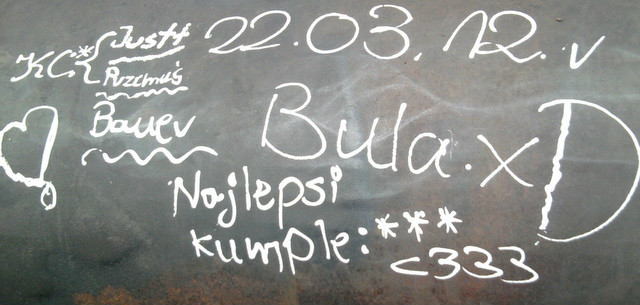 22.03.12.v
KC* { Justt
Przemuś
Bauer
Bula.xD
Najlepsi
kumple:***
<333